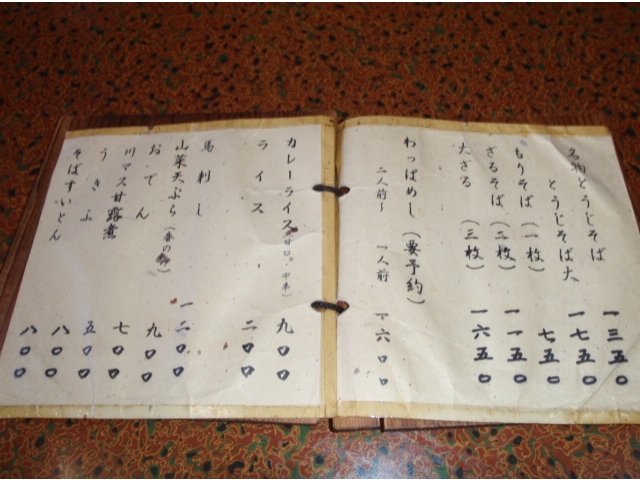 名物とうじそば 一三五〇
とうじそば大 一七五〇
もりそば(一枚) 七五〇
ざるそば(二枚) 一一五〇
大ざる(三枚) 一六五〇
わっぱめし(要予約)
二人前〜 一人前 一六〇〇
カレーライス(甘口・中辛) 九〇〇
ライス 二〇〇
馬刺し
山菜天ぷら(春のみ) 一二〇〇
おでん 九〇〇
川マス甘露煮 七〇〇
うきふ 五〇〇
そばすいとん 八〇〇
八〇〇